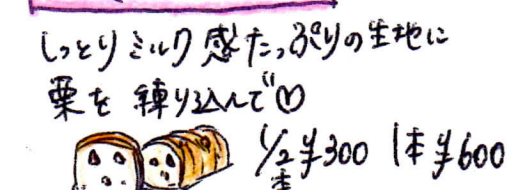 しっとりミルク感たっぷりの生地に
栗を練り込んで♡
1/2本 ¥300 1本 ¥600